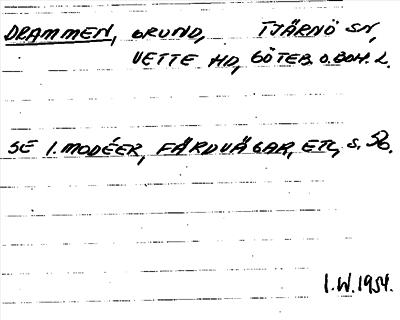 DRAMMEN, GRUND, TJÄRNÖ SN,
VETTE HD, GÖTEB. O. BOH. L.
SE I. MODÉER, FÄRDVÄGAR, ETC, S. 56.
I.W. 1954.